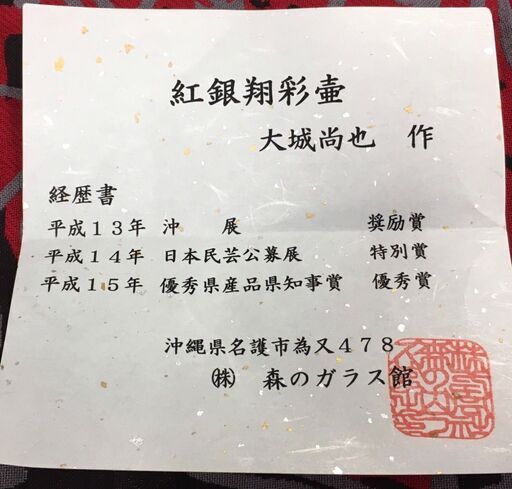 紅銀翔彩壷
大城尚也 作
経歴書
平成13年 沖 展 奨励賞
平成14年 日本民芸公募展 特別賞
平成15年 優秀県産品県知事賞 優秀賞
沖縄県名護市為又478
㈱ 森のガラス館